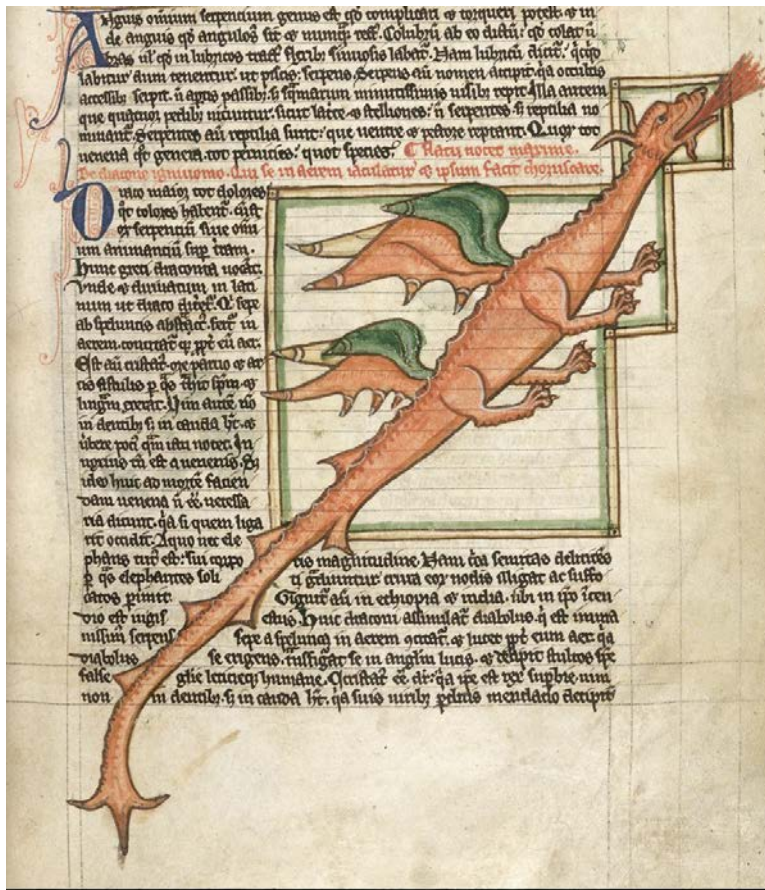 Anguis omnium serpentium genus est qd complicari & torqueri potest & in
de anguis qd angulosus sit & nunq rect. Colubrū ab eo dictū qd colat ū
bras ul qd in lubricos tract flexibz sinuosis labat. Nam lubricū dicit qcqd
labitur dum tenentur ut piscis serpens. Serpens aū nomen accipit qa occultis
accessibz serpit n apertis passibz s squamarum minutissimis nisibz repit. Illa autem
que quatuor pedibz nituntur sicut lacte & stelliones n serpentes s reptilia no
minant. Serpentes aū reptilia sunt que uentre & pectore reptant. Quor tot
uenena qt genera tot pernicies quot species. flatu nocet maxime.
De dracone igniuomo. Qui se in aerem & ipsum facit choruscare.
Draco maior tot dolores
qt colores habent. est
or serpentiū siue omi
um animantiū sup tram.
Hunc greci draconta uocāt
vnde & diriuatum in lati
num ut draco diceret. Q sepe
ab speluncis abstract fert in
aerem concitat q ppt eū aer.
Est aū cristat ore paruo &
tis fistulis p qs thit spm &
lingm exerat. Vim aute nō
in dentibz s in cauda ht &
ubere poti qm ictu nocet. In
noxius tn est a uenenis. Sz
ideo huic ad mortē facien
dam uenena n ēe necessa
ria dicunt qa si quem liga
rit occidit. A quo nec ele
phans tut est sui corpo ris magnitudine. Nam circa semitas delitēs
p qs elephantes soli ti gradiuntur crura eor nodis illigat ac suffo
catos perimit. Gignit aū in ethiopia & india ubi in ipo icen
dio est iugis estus. Huic draconi assimilat diabolus q est imma
nissim serpens sepe a spelunca in aerem & lucet ppt eum aer qa
diabolus se erigens tnsfigurat se in anglm lucis & decipit stultos spe
false glie leticieq humane. Cristat ee dr qa ipe est rex supbie uim
non in dentibz s in cauda ht qa suis uiribz pditis mendacio decipit